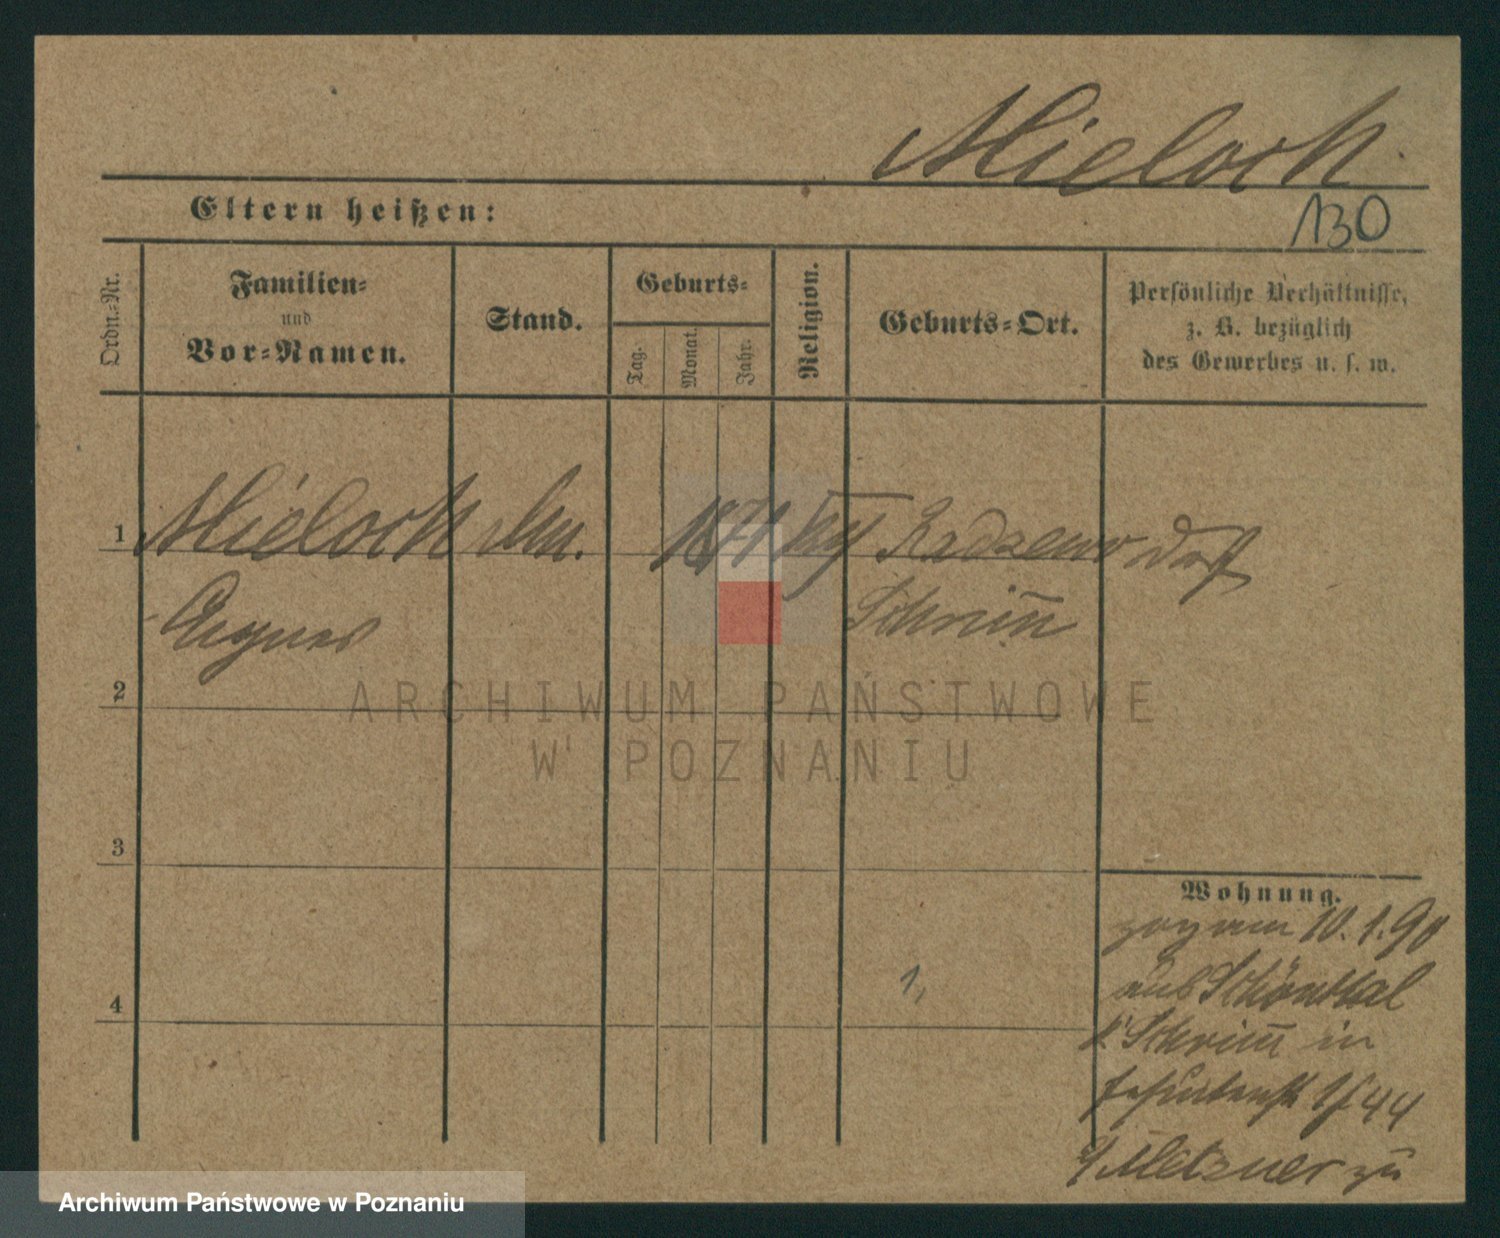 Mieloch
Eltern heißen:
130
Ordn.-Nr.
Familien-
und
Vor-Namen.
Stand.
Geburts-
Tag.
Monat.
Jahr.
Religion.
Geburts-Ort.
Persönliche Verhältnisse,
z. B. bezüglich
des Gewerbes u. s. w.
1
Mieloch 1871 Radzewo Dorf
Agnes Schrim̅
2
3
4
1,
Wohnung.
zog am 10. 1. 90
aus Schönthal
Kr Schrim̅ in
44
Metzner zu
ARCHIWUM PAŃSTWOWE
W POZNANIU
Archiwum Państwowe w Poznaniu